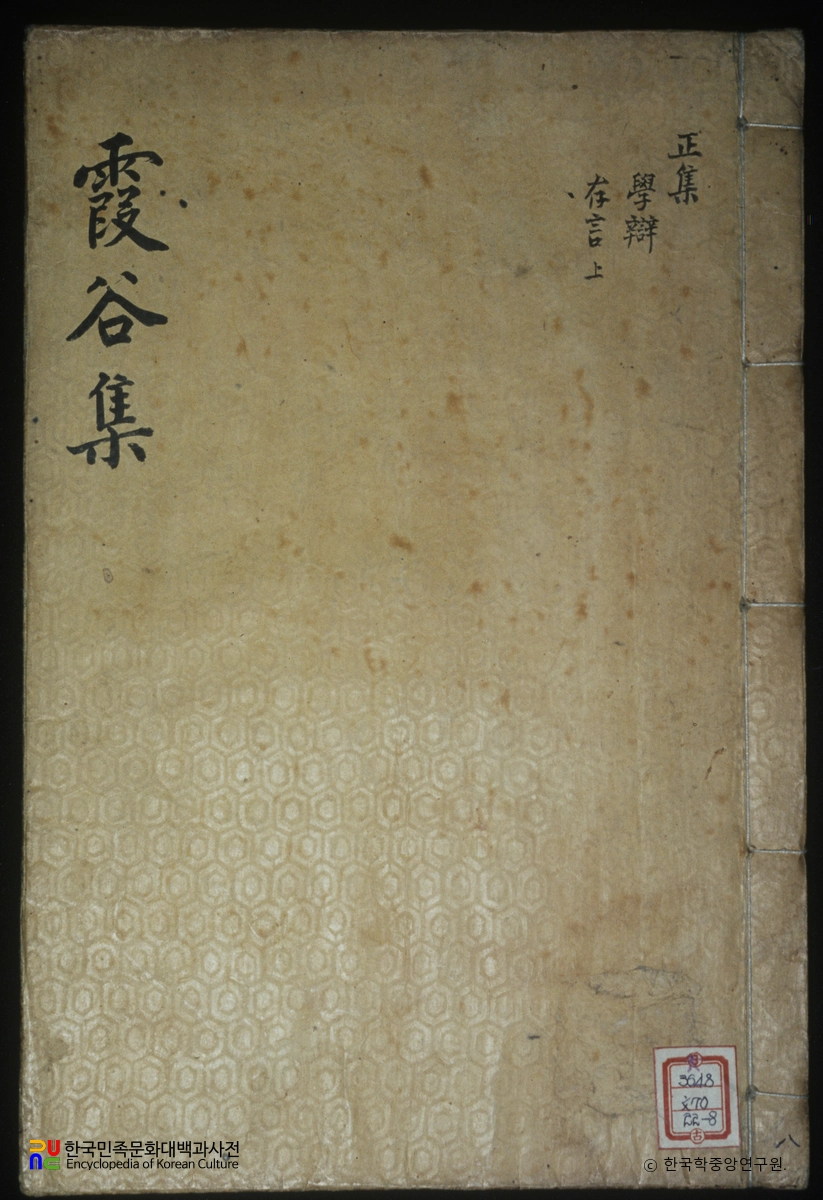 正集
學辯
存言 上
霞谷集
貴
3648
22-8
古
八
한국민족문화대백과사전
Encyclopedia of Korean Culture
© 한국학중앙연구원.